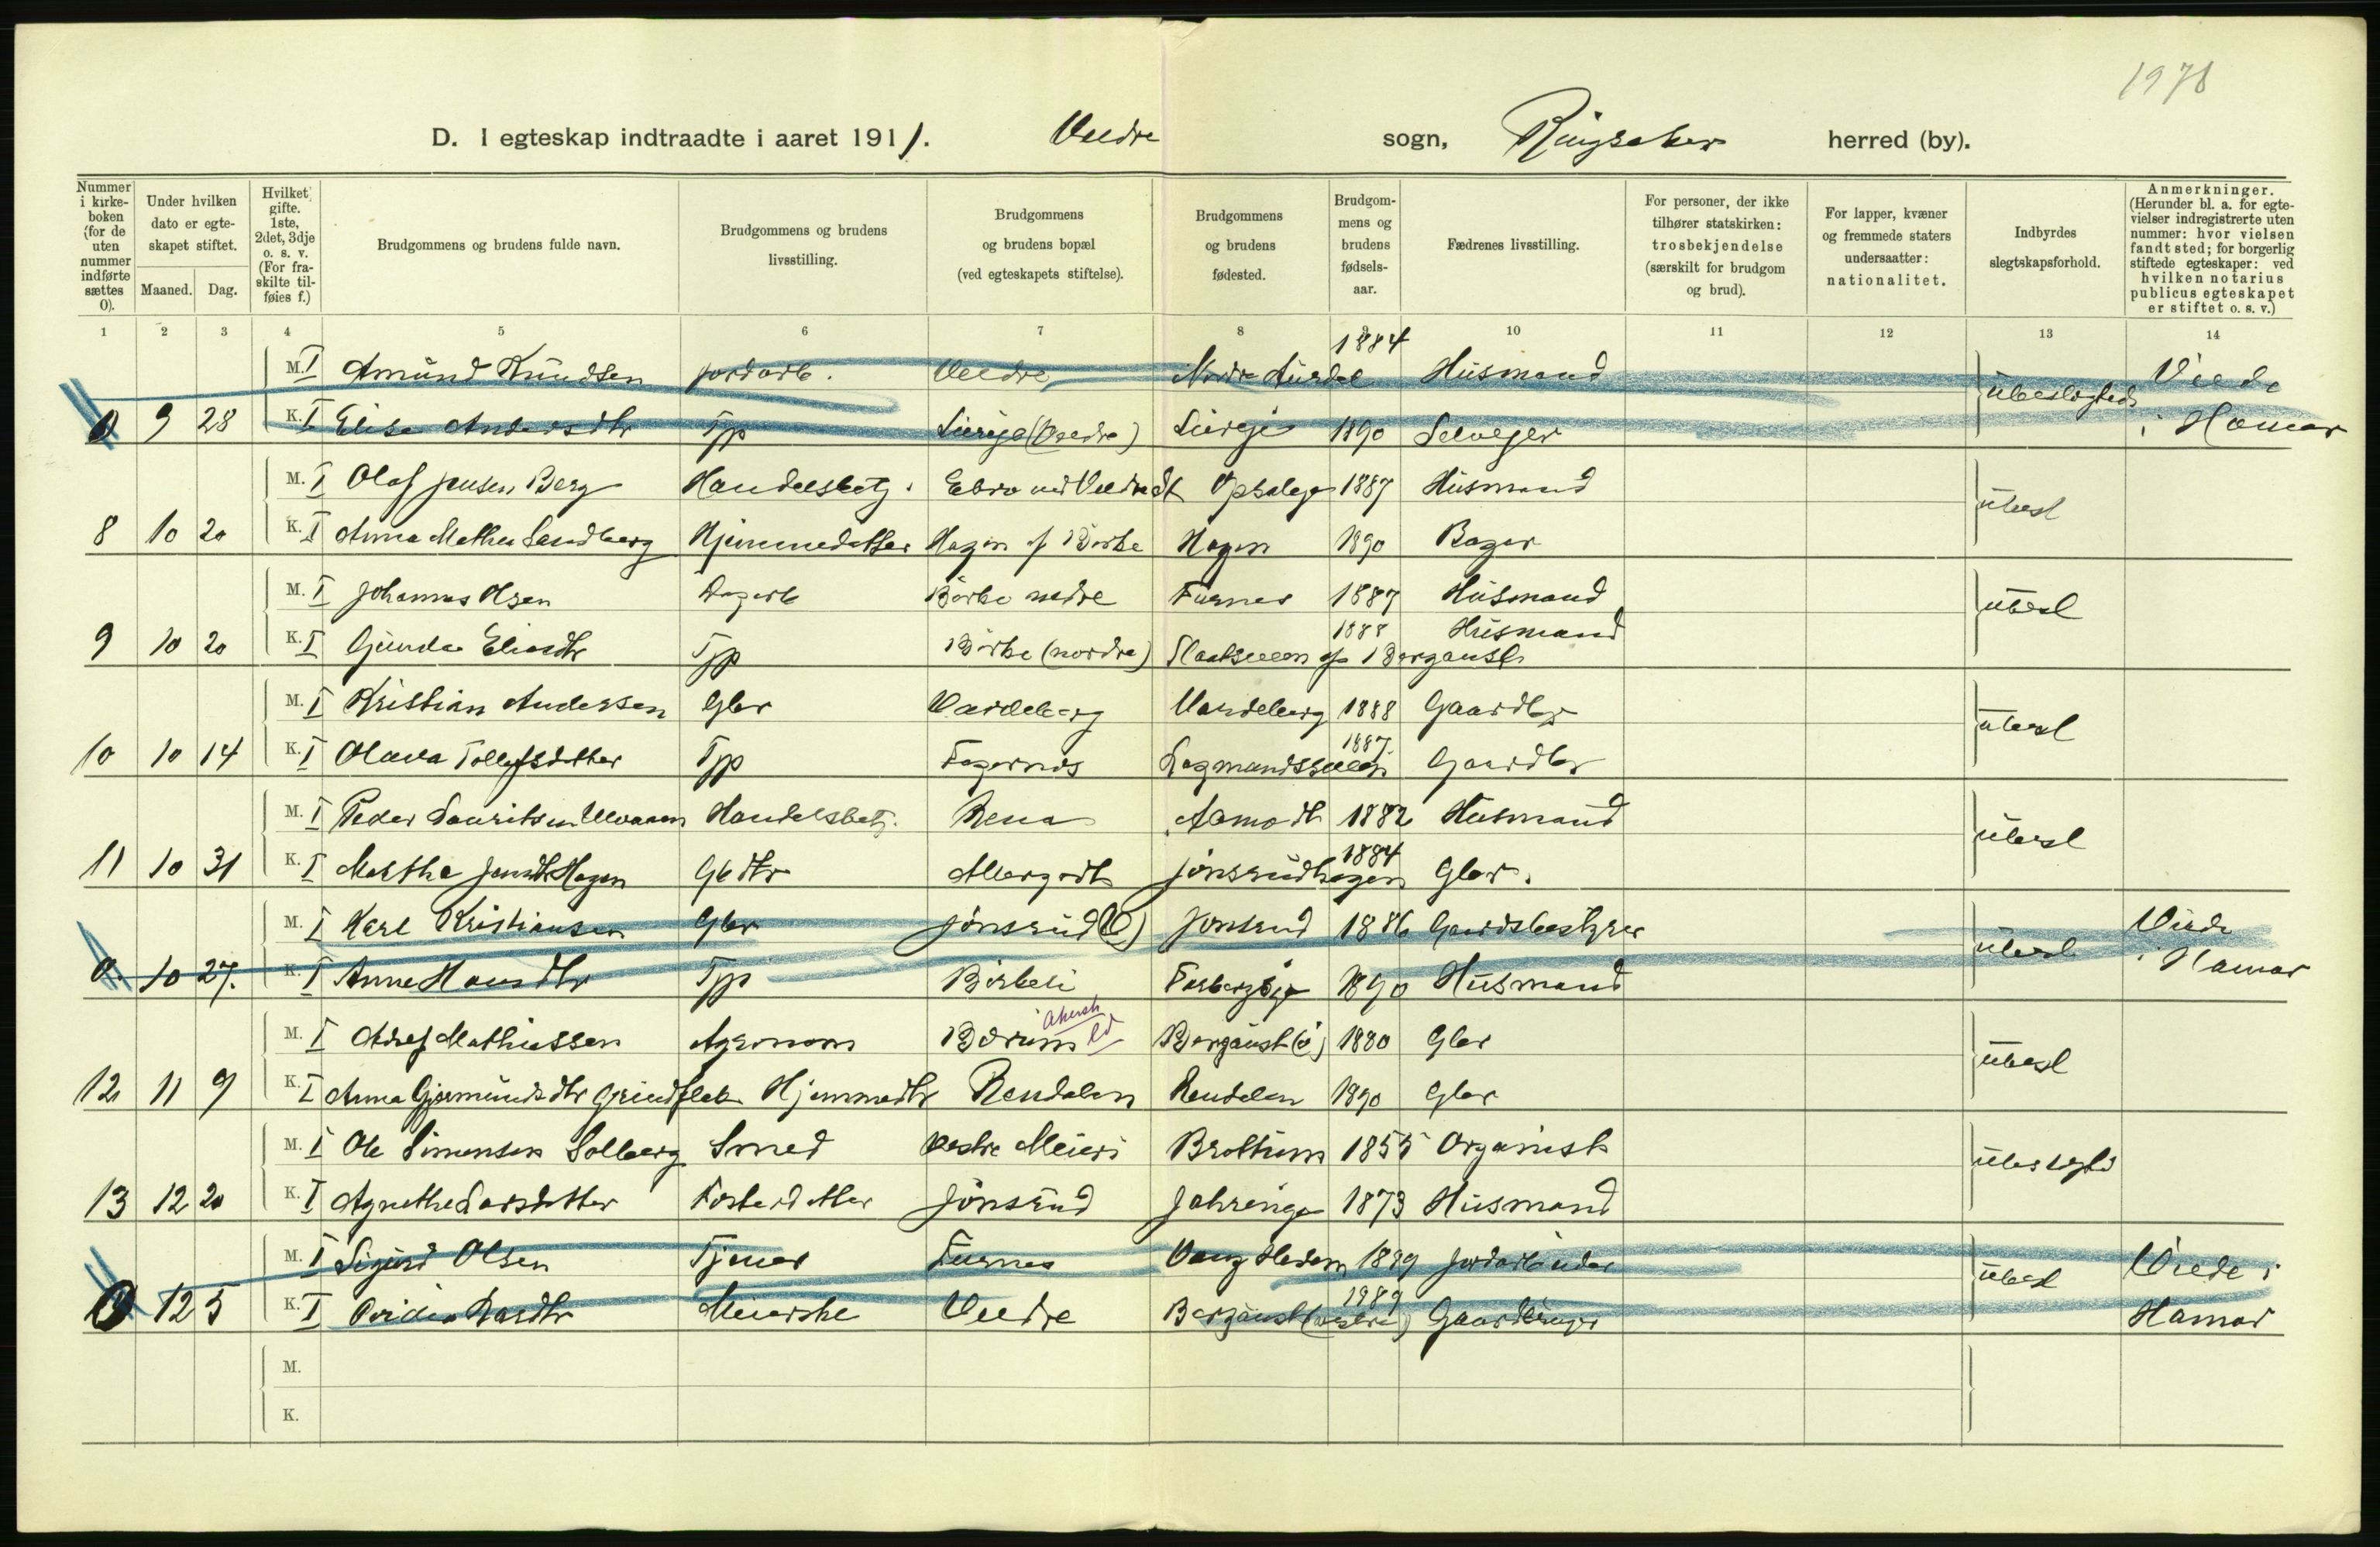 1978
D. I egteskap indtraadte i aaret 1911. Veldre sogn, Ringsaker herred (by).
Nummer i kirke-boken (for de uten nummer indførte sættes 0).
Under hvilken dato er egte-skapet stiftet.
Maaned. Dag.
Hvilket gifte. 1ste, 2det, 3dje o. s. v. (For fra-skilte til-føies f.)
Brudgommens og brudens fulde navn.
Brudgommens og brudens livsstilling.
Brudgommens og brudens bopæl (ved egteskapets stiftelse).
Brudgommens og brudens fødested.
Brudgom-mens og brudens fødsels-aar.
Fædrenes livsstilling.
For personer, der ikke tilhører statskirken: trosbekjendelse (særskilt for brudgom og brud).
For lapper, kvæner og fremmede staters undersaatter: nationalitet.
Indbyrdes slegtskapsforhold.
Anmerkninger. (Herunder bl. a. for egte-vielser indregistrerte uten nummer: hvor vielsen fandt sted; for borgerlig stiftede egteskaper: ved hvilken notarius publicus egteskapet er stiftet o. s. v.)
1 2 3 4 5 6 7 8 9 10 11 12 13 14
M. I Amund Knudsen Jordarb. Veldre Nordre Aurdal 1884 Husmand ubeslegtede Viede
0 9 28 K. I Elise Andersdtr Tjp (Veldre) 1890 Selveier i Hamar
M. I Olaf Jensen Berg Handelsbetj. 1887 Husmand ubesl
8 10 20 K. I Anna Mathea Sandberg Hjemmedatter Hagen Hagen 1890 Bager
M. I Johannes Olsen Dagarb nedre Furnes 1887 Husmand ubesl
9 10 20 K. I Gunda Eliasdtr Tjp (nordre) 1888 Husmand
M. I Kristian Andersen Gbr Vardeberg Vardeberg 1888 Gaardbr ubesl
10 10 14 K. I Olava Tollefsdatter Tjp Fagernes Lagmandsveen 1887 Gaardbr
M. I Peder Lauritsen Handelsbetj. Rena Aamodt 1882 Husmand ubesl
11 10 31 K. I Martha Jensdtr Hagen Gbdtr Jønsrudhagen 1884 Gbr.
M. I Karl Kristiansen Gbr Jønsrud (V) Jonsrud 1886 Gaardsbestyrer ubesl Viede
0. 10 27. K. I Anne Hansdtr Tjp 1890 Husmand i Hamar
M. I Adolf Mathiassen Agronom Bærum Akersh Bergaust (ø) 1880 Gbr ubesl
12 11 9 K. I Anna Gjermundsdtr Grindflek Hjemmedtr Rendalen Rendalen 1890 Gbr
M. I Ole Simensen Solberg Smed vestre Meieri Brøttum 1855 Organist ubeslegtd
13 12 20 K. I Agnethe Larsdatter Fosterdatter Jønsrud 1873 Husmand
M. I Sigurd Olsen Tjener Furnes Vang Hedem 1889 Jordarbeider ubesl Viede i
0 12 5 K. I Larsdtr Meierske Veldre Bergaust (vestre) 1989 Gaardbruger Hamar
M.
K.